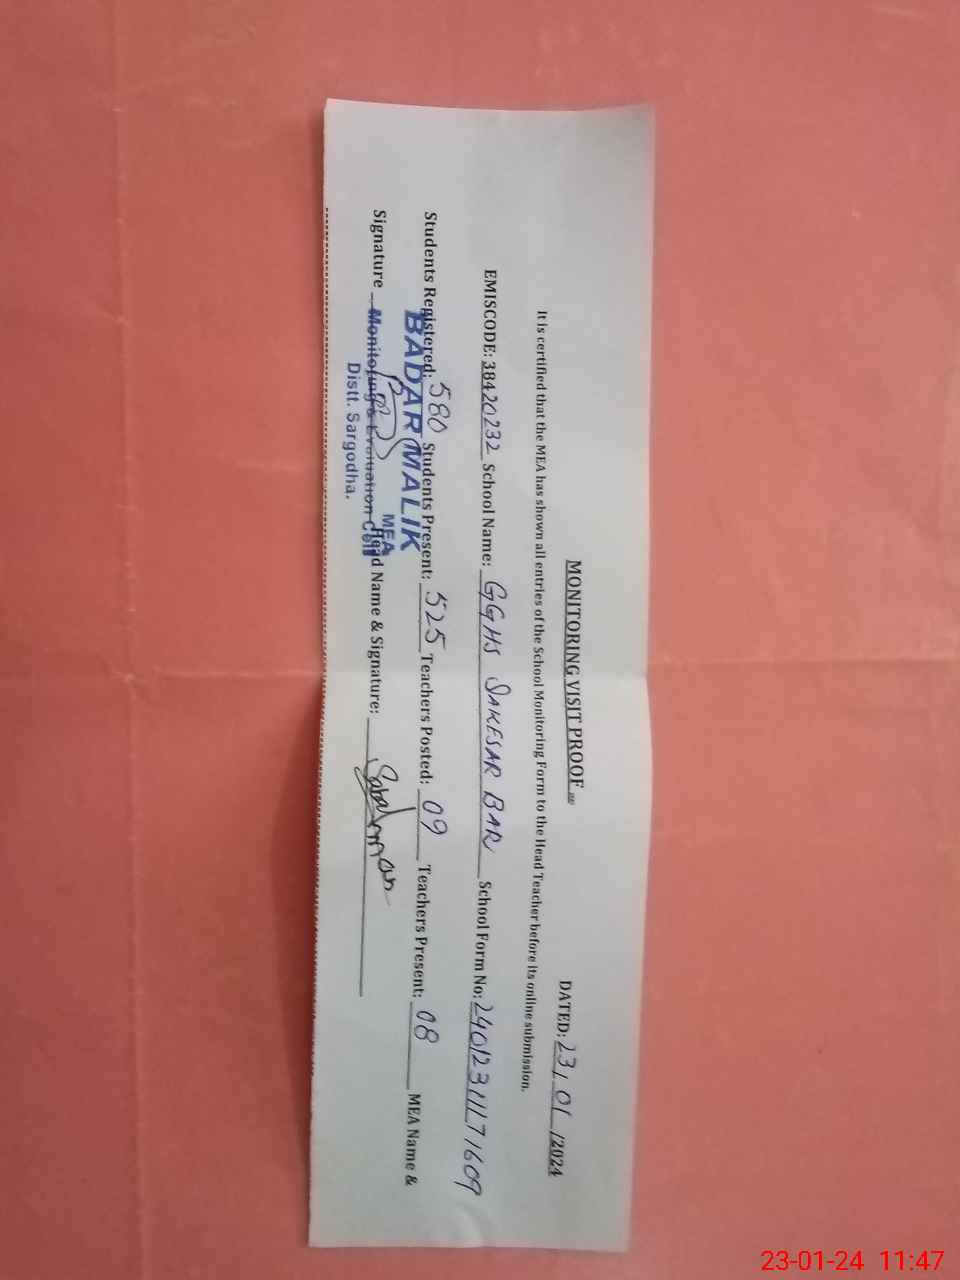 MONITORING VISIT PROOF
DATED: 23/01/2024
It is certified that the MEA has shown all entries of the School Monitoring Form to the Head Teacher before its online submission.
EMISCODE: 38420232 School Name: GGHS SAKESAR BAR School Form No:
Students Registered: 580 Students Present: 525 Teachers Posted: 09 Teachers Present: 08 MEA Name &
BADAR MALIK
MEA
Signature Head Name & Signature:
Monitoring & Evaluation Cell
Distt. Sargodha.
23-01-24 11:47